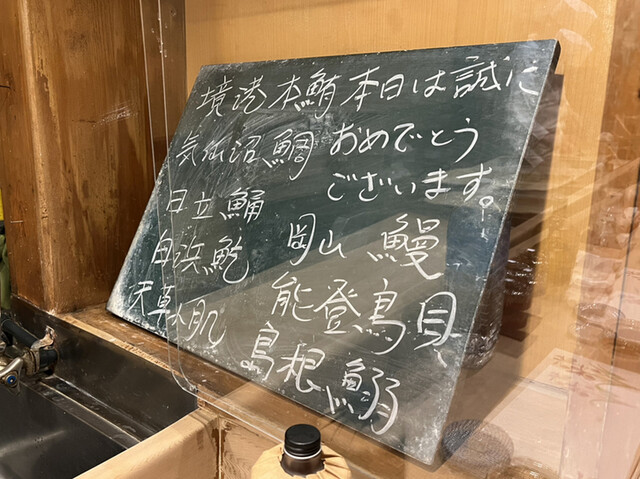 境港 本鮪
気仙沼 鯛
日立 鯒
白浜 鮑
天草 小肌
本日は誠に
おめでとう
ございます。
岡山 鰻
能登 鳥貝
島根 鰯